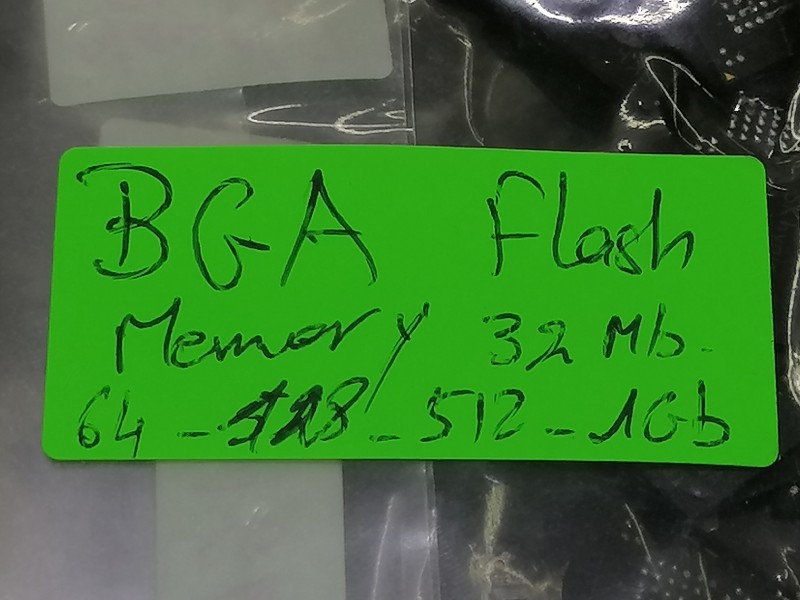 BGA Flash
Memory 32 Mb.
64 - 128 - 512 - 1Gb